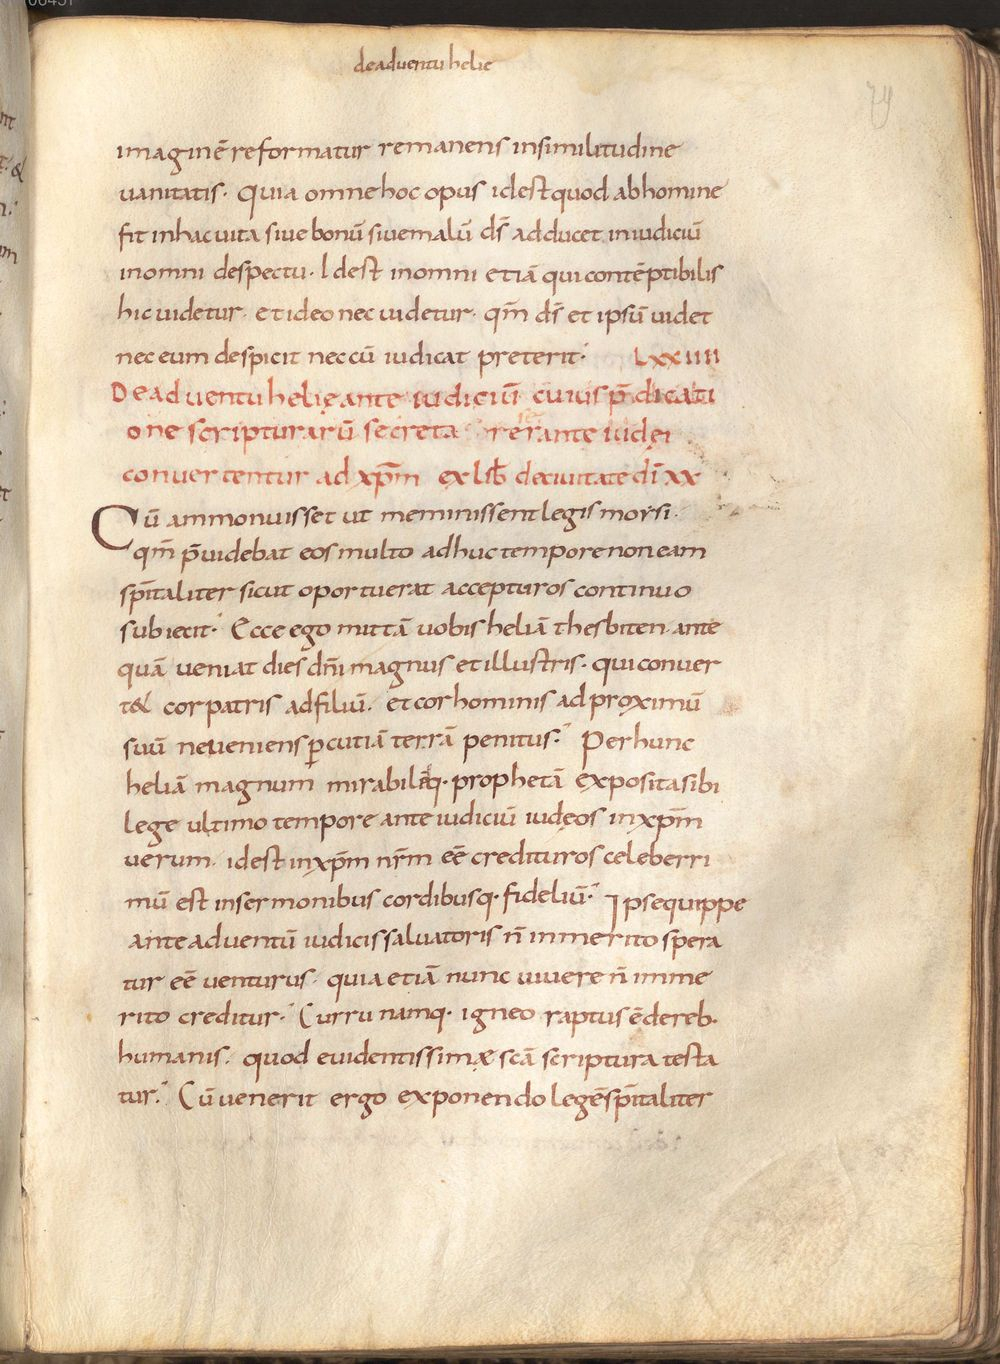 de adventu helie
74
imaginē reformatur remanens insimilitudine
vanitatis· Quia omne hoc opus idest quod ab homine
fit inhac vita sive bonū sive malū dſ̄ adducet iniudiciū
inomni despectu· Idest inomni etiā qui contēptibilis
hic videtur· et ideo nec videtur· qm̄ dſ̄ et ipsū videt
nec eum despicit nec cū iudicat preterit· LXXIIII
De adventu helię ante iudiciū cuius p̄dicati
one scripturarū secreta rerante iudęi
convertentur ad xp̄m ex lib̄ de civitate dī xx
Cū ammonuisset ut meminissent legis moysi·
qm̄ p̄videbat eos multo adhuc tempore non eam
sp̄italiter sicut oportuerat accepturos continuo
subiecit· Ecce ego mittā vobis heliā thesbiten· ante
quā veniat dies dn̄i magnus et illustris· qui conver
t& cor patris ad filiū· et cor hominis ad proximū
suū ne veniens ꝑcutiā terrā penitus· Per hunc
heliā magnum mirabilēq· prophetā exposita sibi
lege ultimo tempore ante iudiciū iudęos inxp̄m
verum· idest inxp̄m nr̄m eē credituros celeberri
mū est insermonibus cordibusq· fideliū· Ipse quippe
ante adventū iudicis salvatoris n̄ inmerito spera
tur eē venturus· quia etiā nunc vivere n̄ inme
rito creditur· Curru namq· igneo raptus ē de reb·
humanis· quod evidentissimæ scā scriptura testa
tur· Cū venerit ergo exponendo legē sp̄italiter